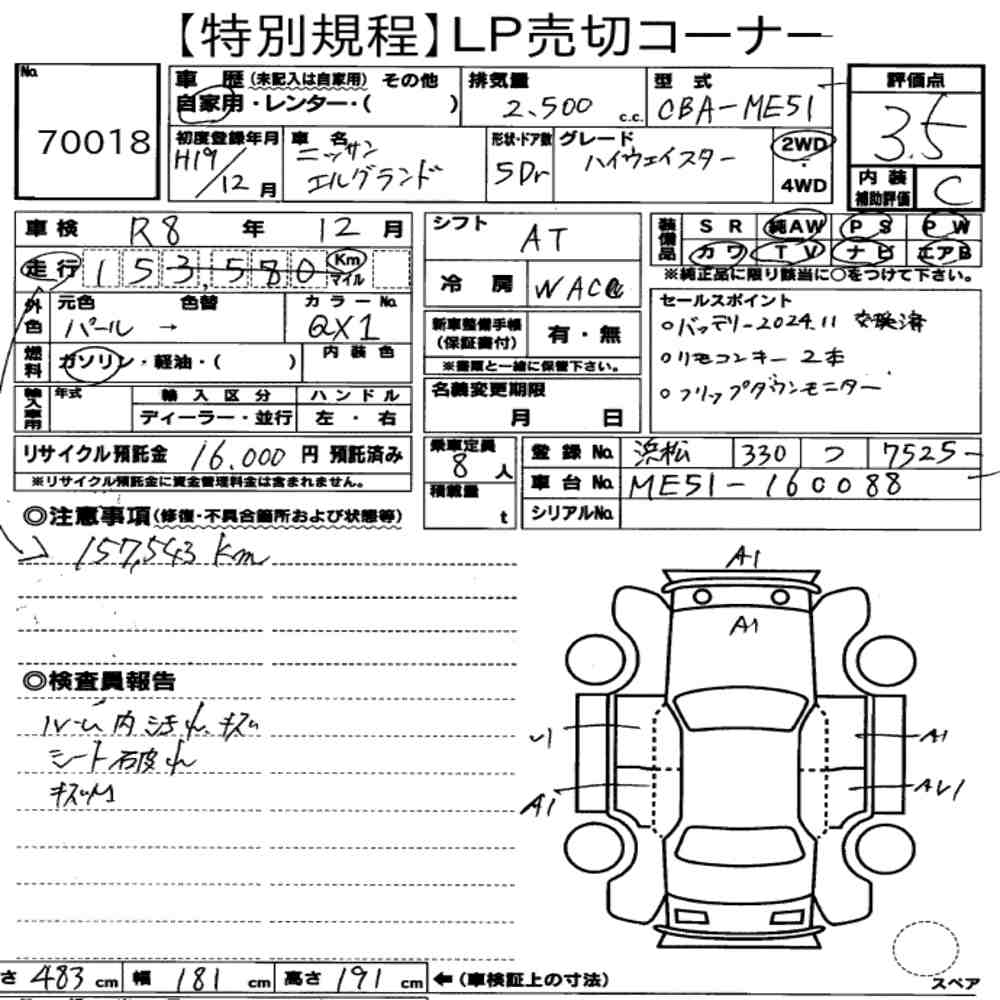 【特別規程】LP売切コーナー
No. 70018
車歴(未記入は自家用) その他
自家用・レンター・( )
排気量 2,500 c.c.
型式 CBA-ME51
評価点 3.5
内装補助評価 C
初度登録年月 H19/12月
車名 ニッサン エルグランド
形状・ドア数 5Dr
グレード ハイウェイスター
2WD・4WD
車検 R8年 12月
走行 153,580 Km マイル
外色 元色 パール → 色替
カラーNo. QX1
燃料 ガソリン・軽油・( )
内装色
輸入車用 年式 輸入区分 ハンドル
ディーラー・並行 左・右
リサイクル預託金 16,000円 預託済み
※リサイクル預託金に資金管理料金は含まれません。
シフト AT
冷房 WAC
新車整備手帳(保証書付) 有・無
※書類と一緒に保管下さい。
名義変更期限
月 日
乗車定員 8人
積載量 t
装備品 SR 純AW PS PW
カワ TV ナビ エアB
※純正品に限り該当に○をつけて下さい。
セールスポイント
○バッテリー2024.11 交換済
○リモコンキー 2本
○フリップダウンモニター
登録No. 浜松 330 つ 7525
車台No. ME51-160088
シリアルNo.
◎注意事項(修復・不具合箇所および状態等)
157,543 km
◎検査員報告
ルーム内 汚れ、キズ
シート 破れ
キズ
A1
A1
U1
A1
A1
AU1
さ 483 cm 幅 181 cm 高さ 191 cm ←(車検証上の寸法)
スペア